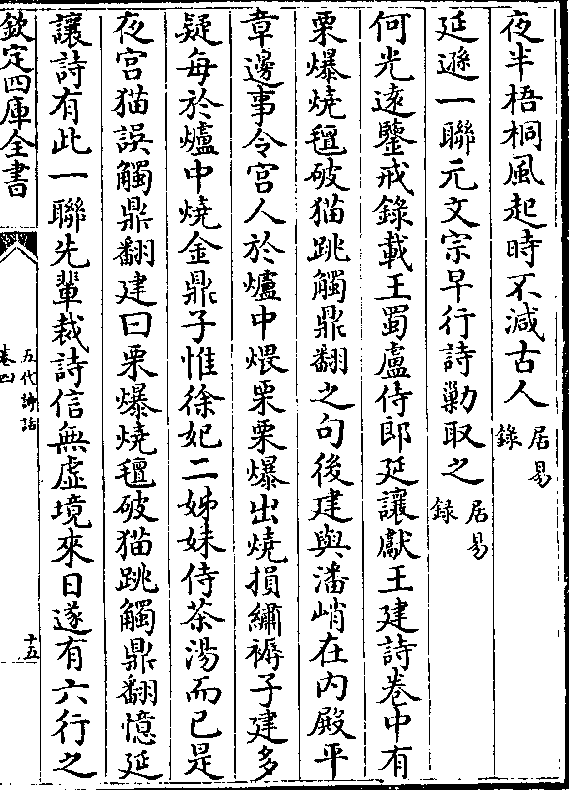 夜半梧桐風起時不減古人居易錄
延遜一聯元文宗早行詩勦取之居易錄
何光遠鑒戒錄載王蜀盧侍郎延讓獻王建詩卷中有
栗爆燒氊破猫跳觸鼎翻之句後建與潘峭在内殿平
章邊事令宫人於爐中煨栗栗爆出燒損繡褥子建多
疑每於爐中燒金鼎子惟徐妃二姊妹侍茶湯而已是
夜宫猫誤觸鼎翻建曰栗爆燒氊破猫跳觸鼎翻憶延
讓詩有此一聯先輩裁詩信無虛境來日遂有六行之
欽定四庫全書
五代詩話
卷四
十五